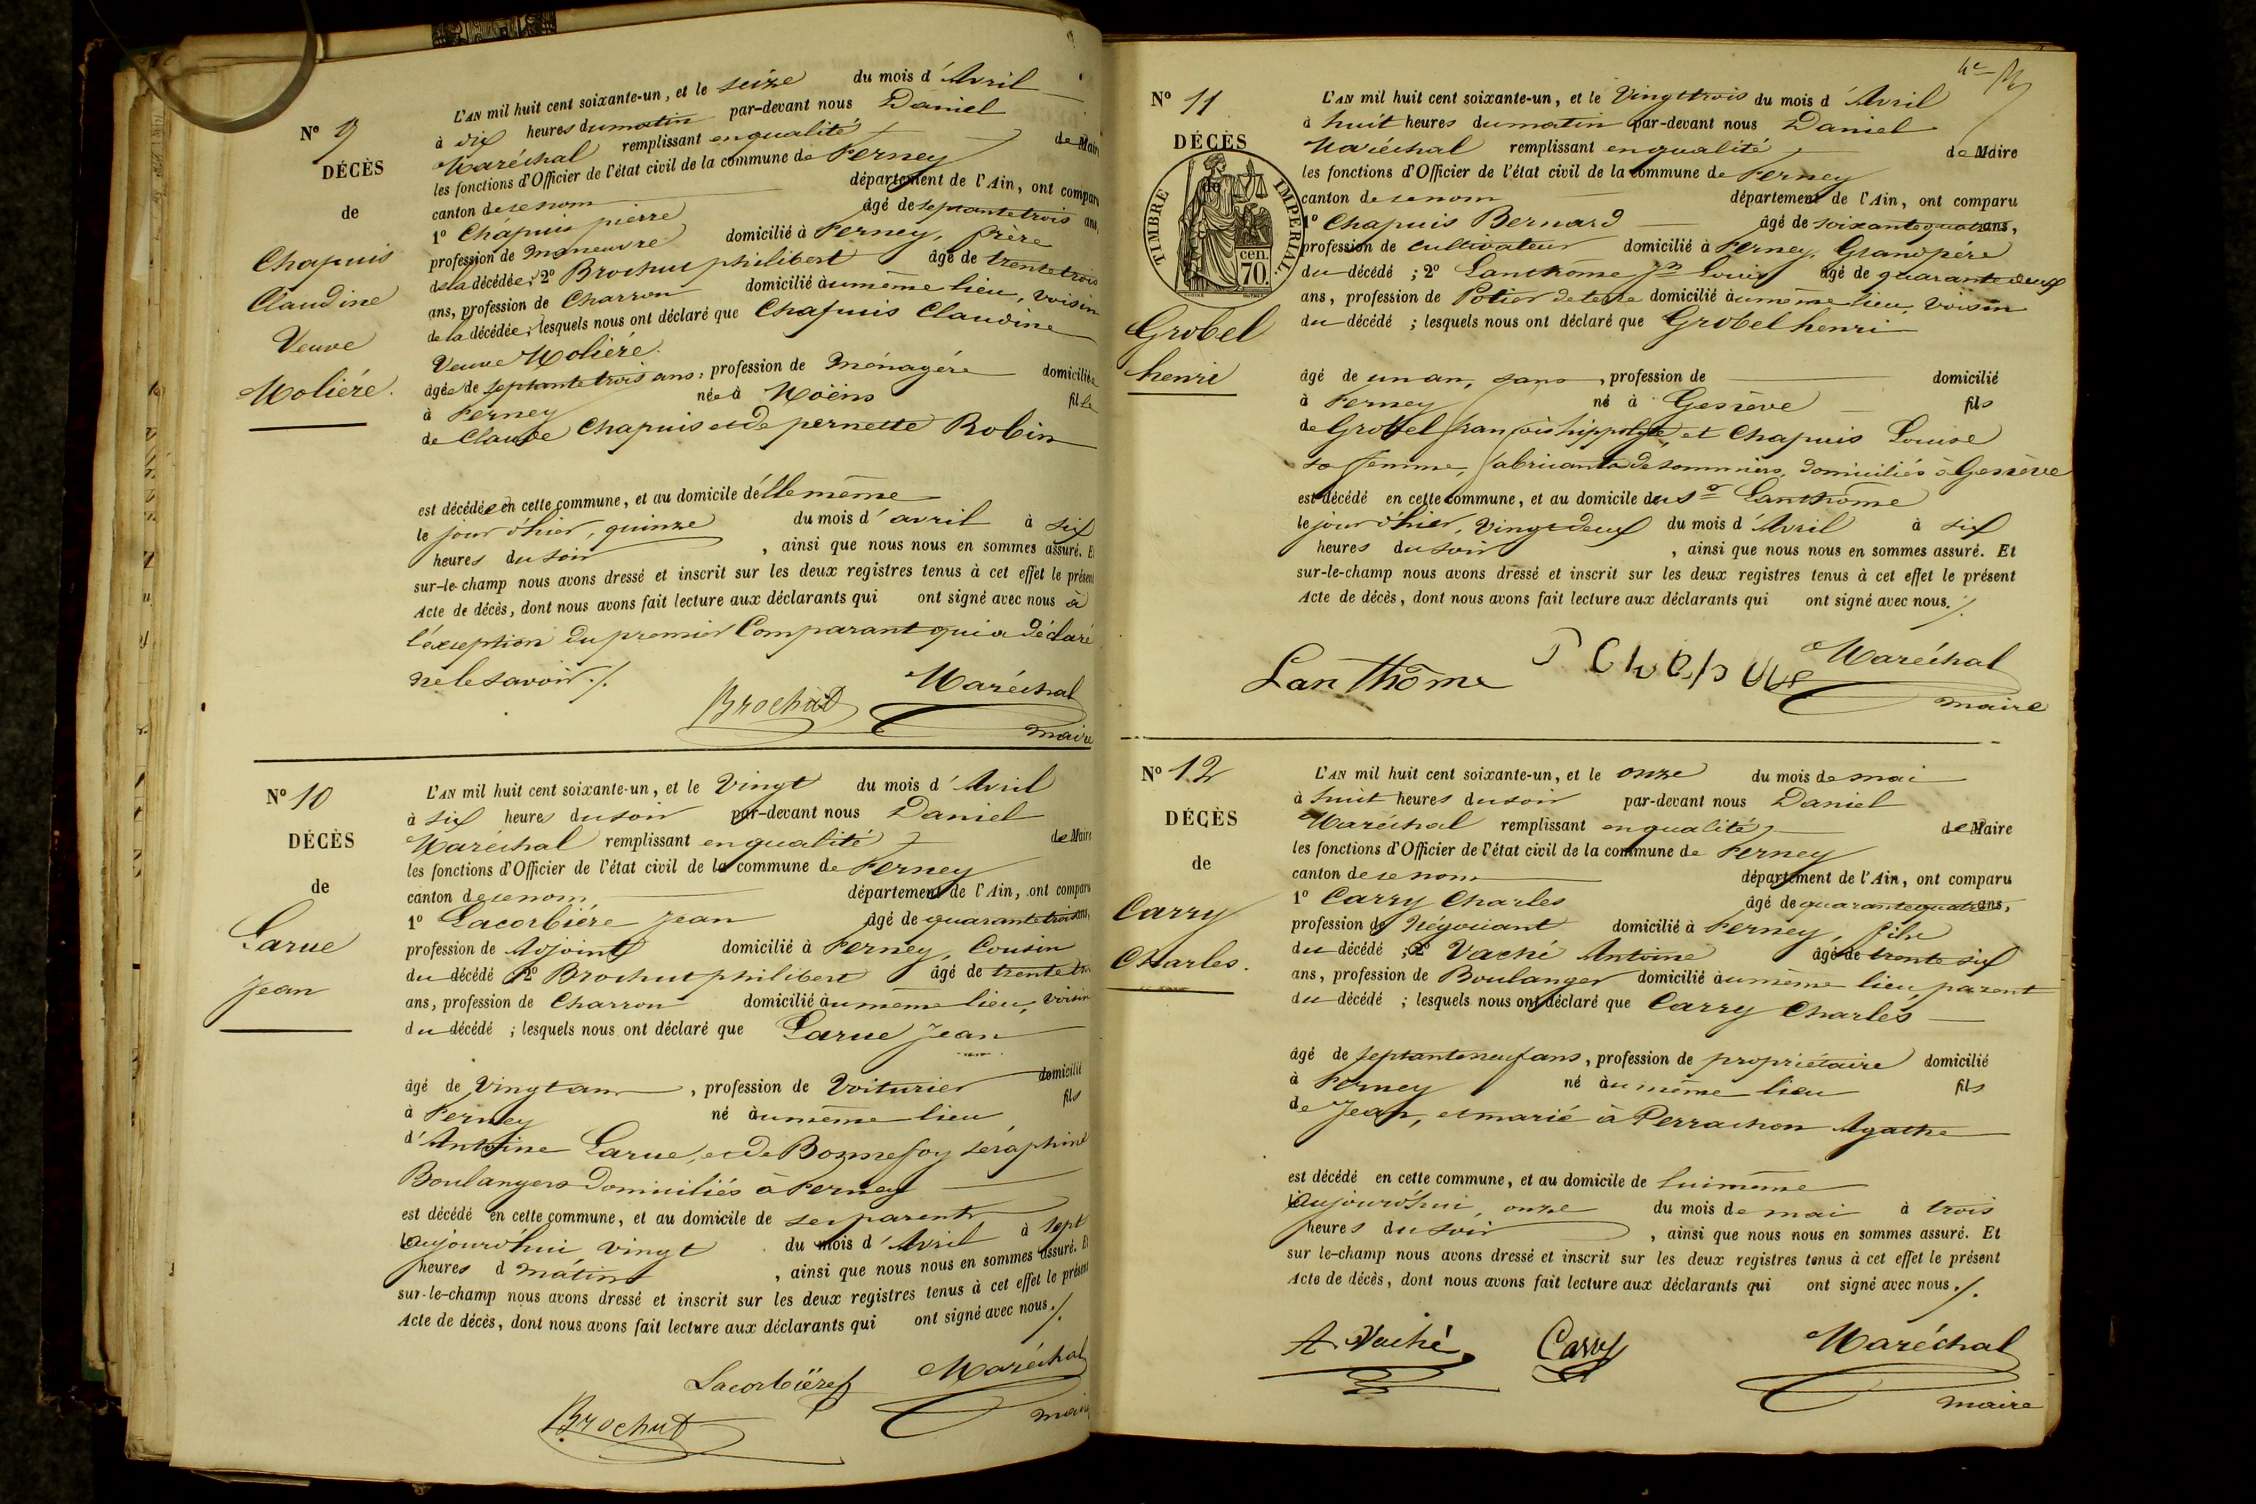 N° 9
DÉCÈS
de
Chapuis
Claudine
Veuve
Molière.
L'AN mil huit cent soixante-un, et le seize du mois d'Avril
à dix heures du matin par-devant nous Daniel
Maréchal remplissant en qualité de Maire
les fonctions d'Officier de l'état civil de la commune de Ferney
canton de ce nom département de l'Ain, ont comparu
1° Chapuis pierre âgé de septante trois ans,
profession de Maneuvre domicilié à Ferney, frère
de la décédée; 2° Brochut philibert âgé de trente trois
ans, profession de Charron domicilié au même lieu, voisin
de la décédée; lesquels nous ont déclaré que Chapuis Claudine
Veuve Molière.
âgée de septante trois ans, profession de Ménagère domiciliée
à Ferney née à Moëns fille
de Claude Chapuis et de pernette Robin
est décédée en cette commune, et au domicile d'elle même
le jour d'hier, quinze du mois d'avril à six
heures du soir, ainsi que nous nous en sommes assuré. Et
sur-le-champ nous avons dressé et inscrit sur les deux registres tenus à cet effet le présent
Acte de décès, dont nous avons fait lecture aux déclarants qui ont signé avec nous à
l'exception du premier Comparant qui a déclaré
ne le savoir ./.
Brochut Maréchal
maire
N° 10
DÉCÈS
de
Larue
Jean
L'AN mil huit cent soixante-un, et le Vingt du mois d'Avril
à six heures du soir par-devant nous Daniel
Maréchal remplissant en qualité de Maire
les fonctions d'Officier de l'état civil de la commune de Ferney
canton de ce nom département de l'Ain, ont comparu
1° Lacorbière Jean âgé de quarante trois ans,
profession de Adjoint domicilié à Ferney, Cousin
du décédé 2° Brochut philibert âgé de trente tro
ans, profession de Charron domicilié au même lieu, voisin
du décédé ; lesquels nous ont déclaré que Larue Jean
âgé de Vingt ans, profession de Voiturier domicilié
à Ferney né au même lieu fils
d'Antoine Larue, et de Bonnefoy séraphine
Boulangers domiciliés à Ferney
est décédé en cette commune, et au domicile de ses parents
aujourd'hui vingt du mois d'Avril à sept
heures d matin, ainsi que nous nous en sommes assuré. Et
sur-le-champ nous avons dressé et inscrit sur les deux registres tenus à cet effet le présent
Acte de décès, dont nous avons fait lecture aux déclarants qui ont signé avec nous ./.
Lacorbière Maréchal
Brochut maire
4e
N° 11
DÉCÈS
de
TIMBRE IMPÉRIAL.
cen.
70.
Grobel
henri
L'AN mil huit cent soixante-un, et le Vingt trois du mois d'Avril
à huit heures du matin par-devant nous Daniel
Maréchal remplissant en qualité de Maire
les fonctions d'Officier de l'état civil de la commune de Ferney
canton de ce nom département de l'Ain, ont comparu
1° Chapuis Bernard âgé de soixante quatre ans,
profession de cultivateur domicilié à Ferney, Grandpère
du décédé ; 2° Lanthôme Jn Louis âgé de quarante deux
ans, profession de Potier de terre domicilié au même lieu, voisin
du décédé ; lesquels nous ont déclaré que Grobel henri
âgé de un an, sans, profession de domicilié
à Ferney né à Genève fils
de Grobel françois hippolyte, et Chapuis Louise
sa femme, fabricants de sommiers, domiciliés à Genève
est décédé en cette commune, et au domicile du sr Lanthôme
le jour d'hier, vingt deux du mois d'Avril à six
heures du soir, ainsi que nous nous en sommes assuré. Et
sur-le-champ nous avons dressé et inscrit sur les deux registres tenus à cet effet le présent
Acte de décès, dont nous avons fait lecture aux déclarants qui ont signé avec nous ./.
Lanthôme Maréchal
maire
N° 12
DÉCÈS
de
Carry
Charles.
L'AN mil huit cent soixante-un, et le onze du mois de mai
à huit heures du soir par-devant nous Daniel
Maréchal remplissant en qualité de Maire
les fonctions d'Officier de l'état civil de la commune de Ferney
canton de ce nom département de l'Ain, ont comparu
1° Carry Charles âgé de quarante quatre ans,
profession de Négociant domicilié à Ferney, fils
du décédé ; 2° Vaché Antoine âgé de trente six
ans, profession de Boulanger domicilié au même lieu, parent
du décédé ; lesquels nous ont déclaré que Carry Charles
âgé de septante neuf ans, profession de propriétaire domicilié
à Ferney né au même lieu fils
de Jean, et marié à Perrachon Agathe
est décédé en cette commune, et au domicile de lui même
aujourd'hui, onze du mois de mai à trois
heures du soir, ainsi que nous nous en sommes assuré. Et
sur le-champ nous avons dressé et inscrit sur les deux registres tenus à cet effet le présent
Acte de décès, dont nous avons fait lecture aux déclarants qui ont signé avec nous ./.
A. Vaché Carry Maréchal
maire